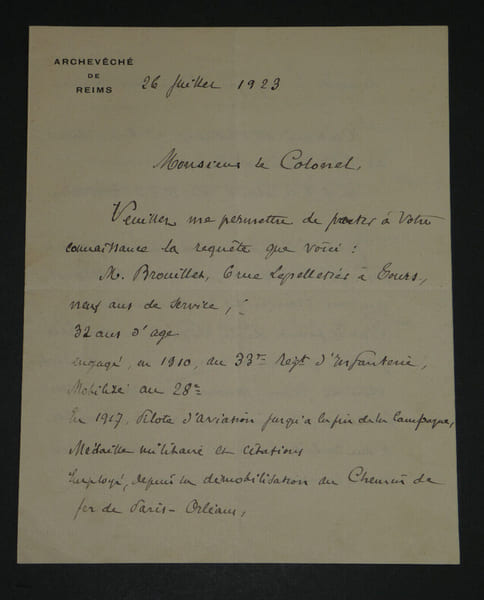 ARCHEVÊCHÉ
DE
REIMS
26 Juillet 1923
Monsieur le Colonel,
Veuillez me permettre de porter à Votre
connaissance la requête que voici :
M. Brouillet, 6 rue à Tours,
neuf ans de service,
32 ans d'age
engagé, en 1910, au 33me Regt d'Infanterie,
Mobilisé au 28e
En 1917, Pilote d'aviation jusqu'a la fin de la Campagne,
Médaille militaire et citations
Employé, depuis sa démobilisation au Chemin de
fer de Paris-Orléans,